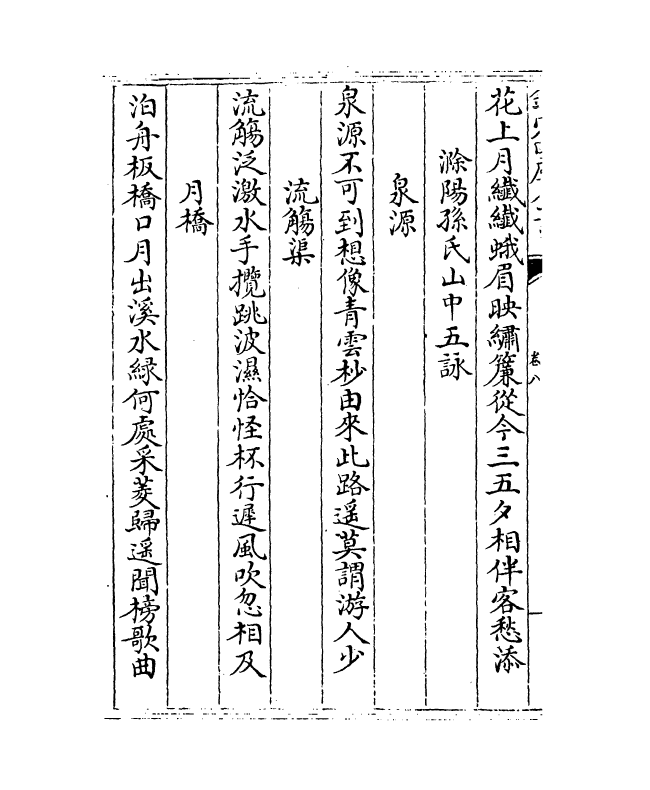 花上月纖纖蛾眉映繡簾從今三五夕相伴客愁添
滁陽孫氏山中五詠
泉源
泉源不可到想像青雲杪由來此路遥莫謂游人少
流觴渠
流觴泛激水手攬跳波濕恰怪杯行遲風吹忽相及
月橋
泊舟板橋口月出溪水緑何處采菱歸遥聞榜歌曲
卷八